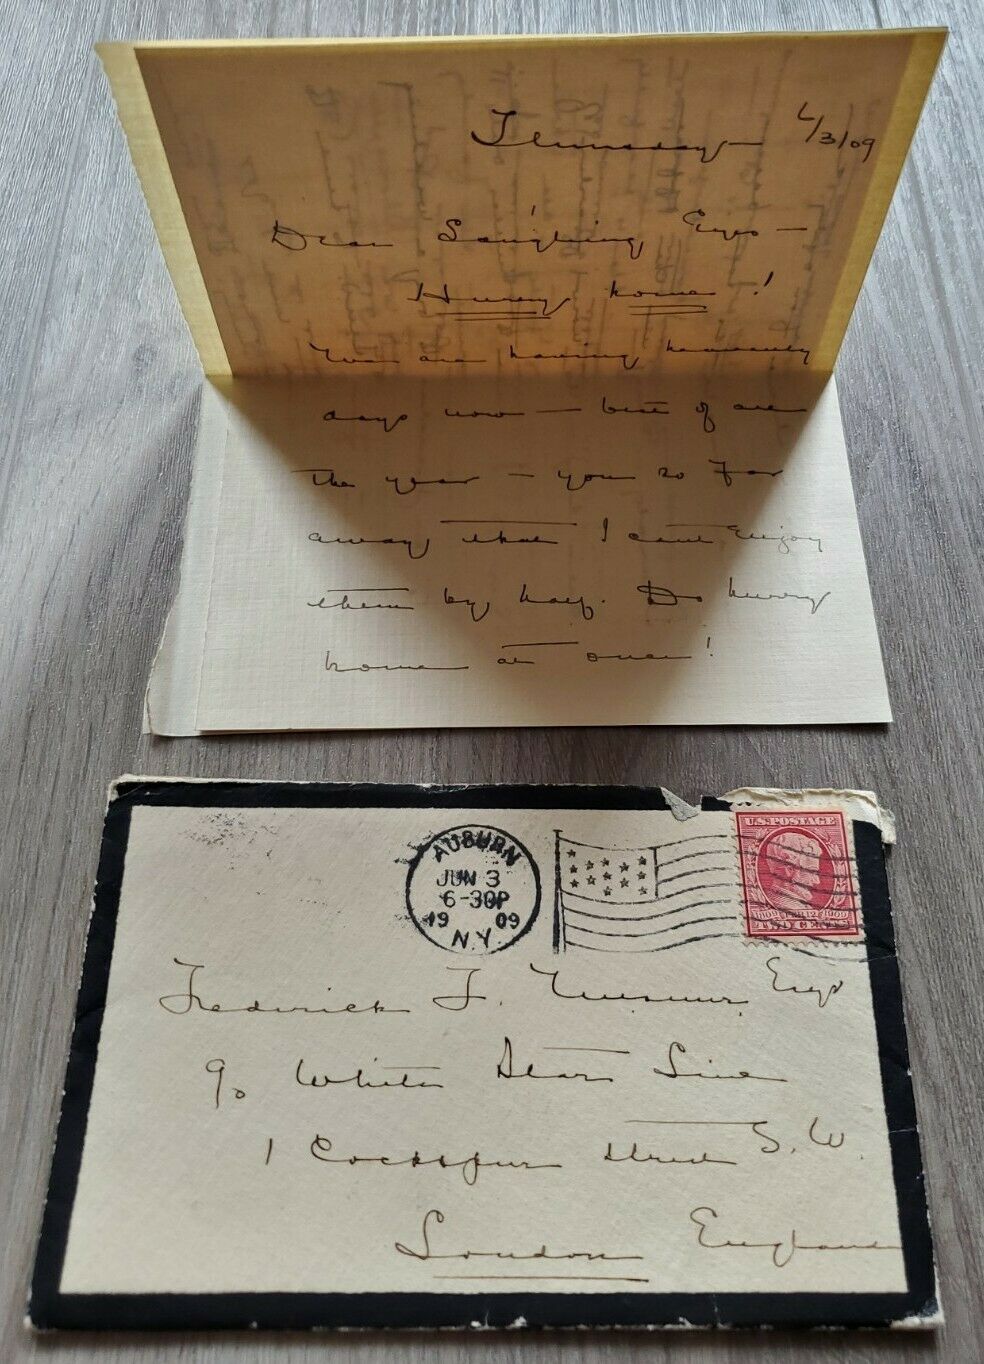 Thursday — 6/3/09
Dear Laughing Eyes —
Hurry home!
You are having heavenly
days now — best of all
the year — you so far
away that I can't enjoy
them by half. Do hurry
home at once!
AUBURN
JUN 3
6-30P
1909
N.Y.
U.S. POSTAGE
1809 FEB 12 1909
TWO CENTS
Frederick F. Esq
c/o White Star Line
1 Cockspur Street S.W.
London England